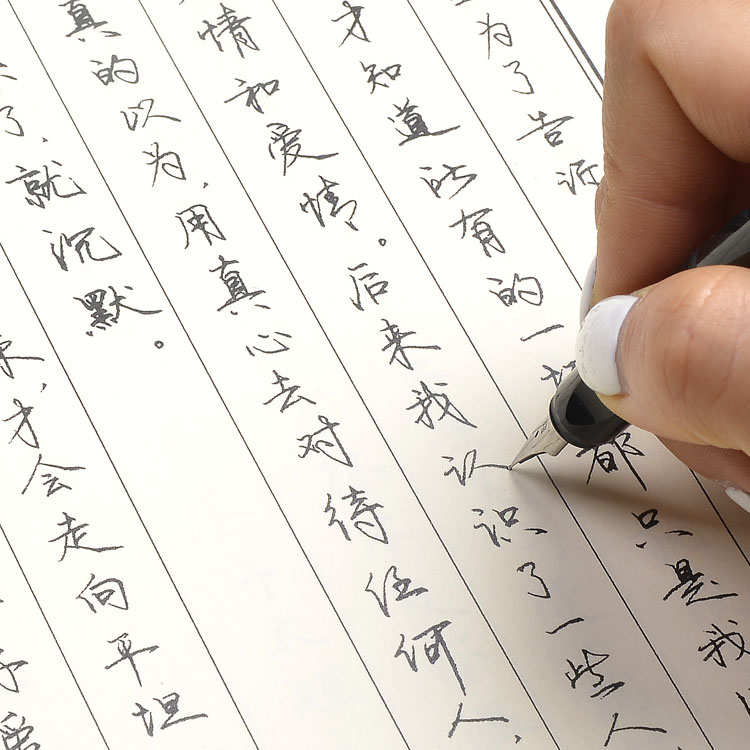 来,才会走向平坦
了,就沉默。
真的以为,用真心去对待任何人,
情和爱情。后来我认识了一些人
才知道所有的一都只是我
为了告诉